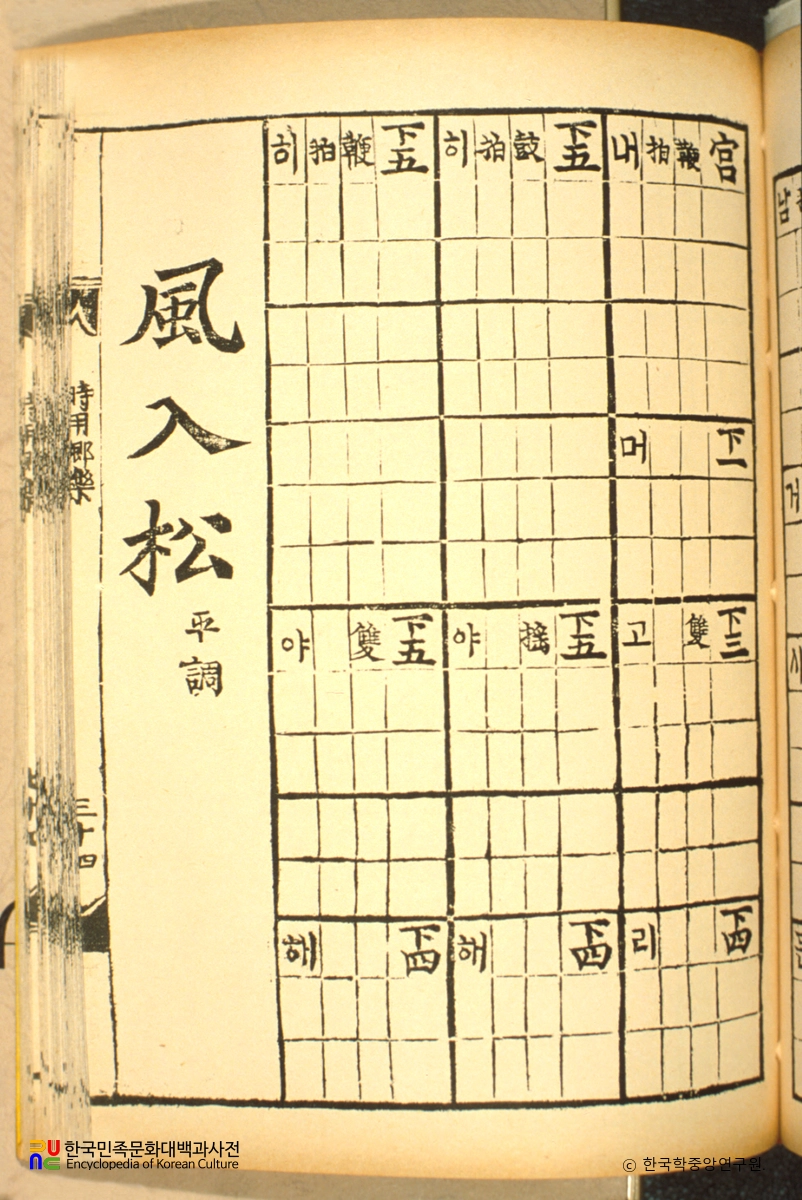 宮 下一 下三 下四
鞭 雙
拍
내 머 고 리
下五 下五 下四
鼓 搖
拍
히 야 해
下五 下五 下四
鞭 雙
拍
히 야 해
風入松 平調
時用鄕樂 三十四
한국민족문화대백과사전
Encyclopedia of Korean Culture
© 한국학중앙연구원